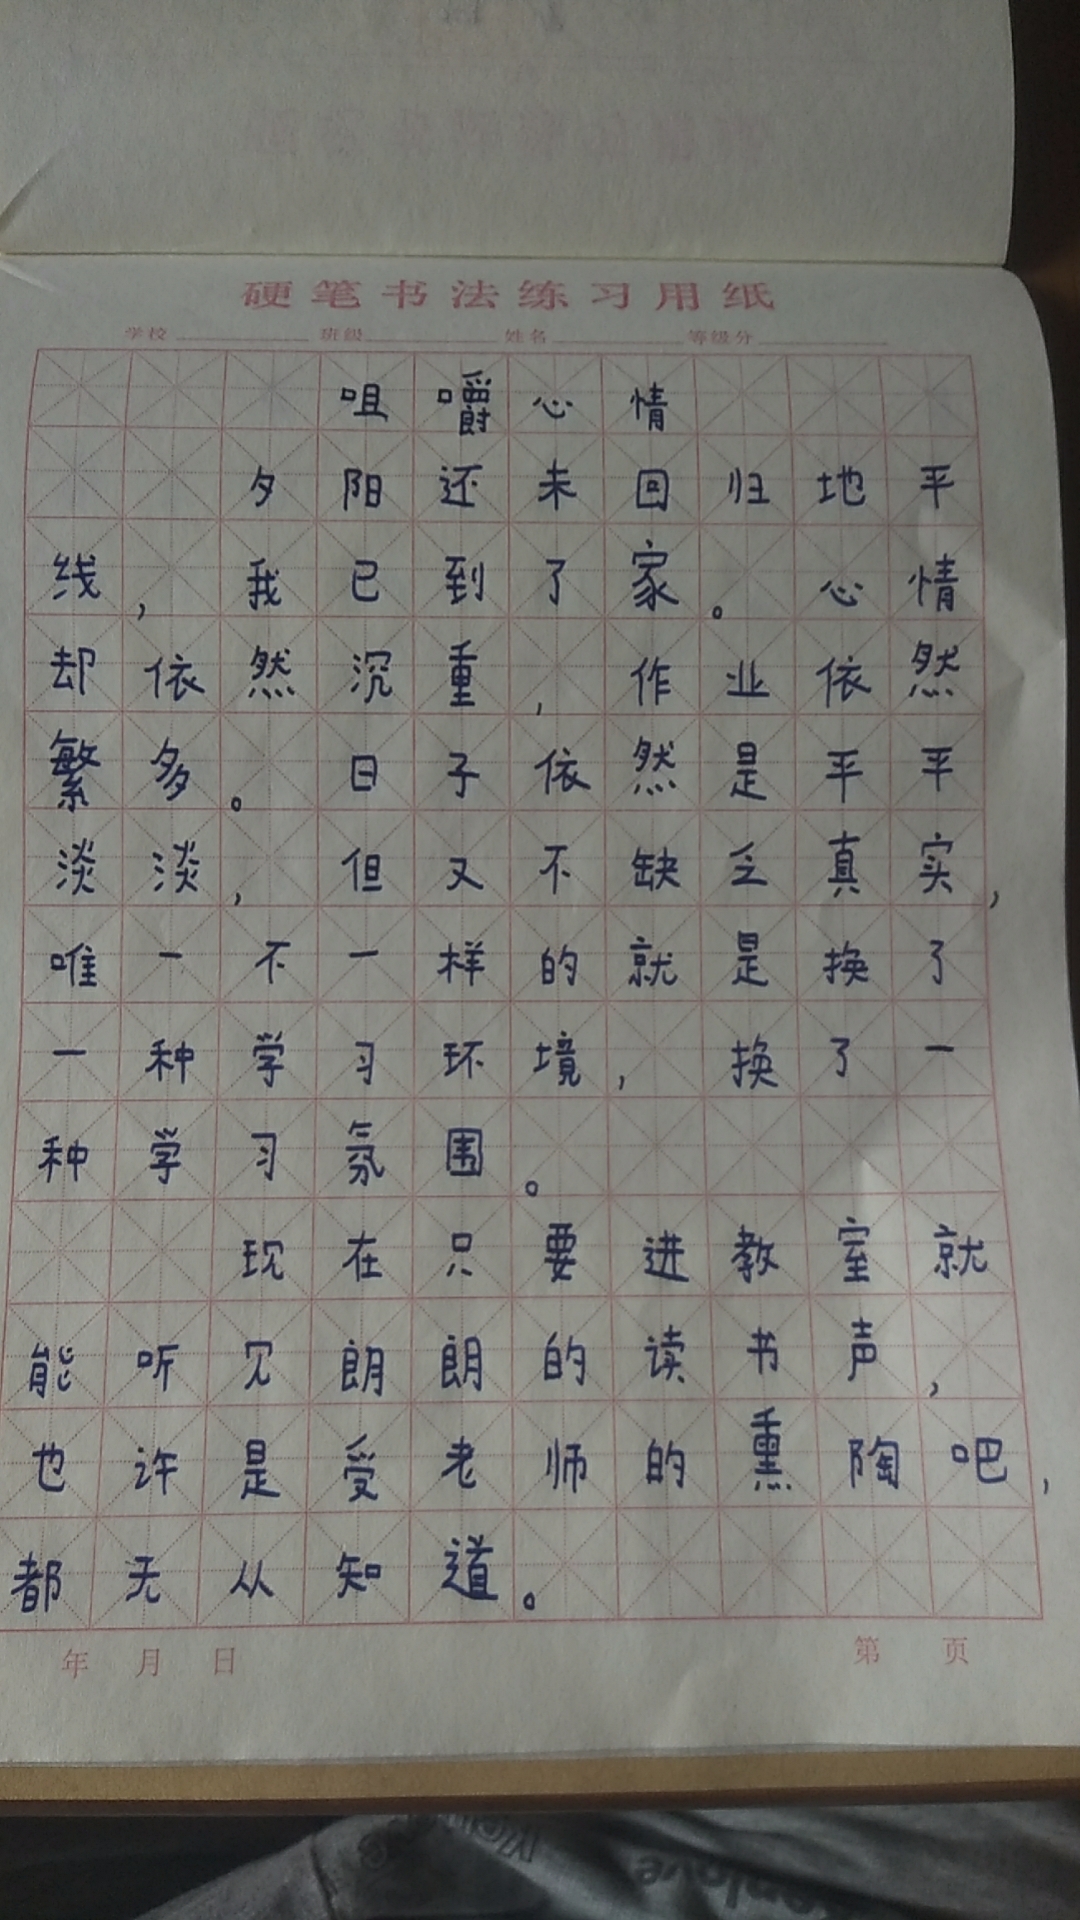 硬笔书法练习用纸
学校 班级 姓名 等级分
咀嚼心情
夕阳还未回归地平
线,我已到了家。心情
却依然沉重,作业依然
繁多。日子依然是平平
淡淡,但又不缺乏真实,
唯一不一样的就是换了
一种学习环境,换了一
种学习氛围。
现在只要进教室就
能听见朗朗的读书声,
也许是受老师的熏陶吧,
都无从知道。
年 月 日 第 页